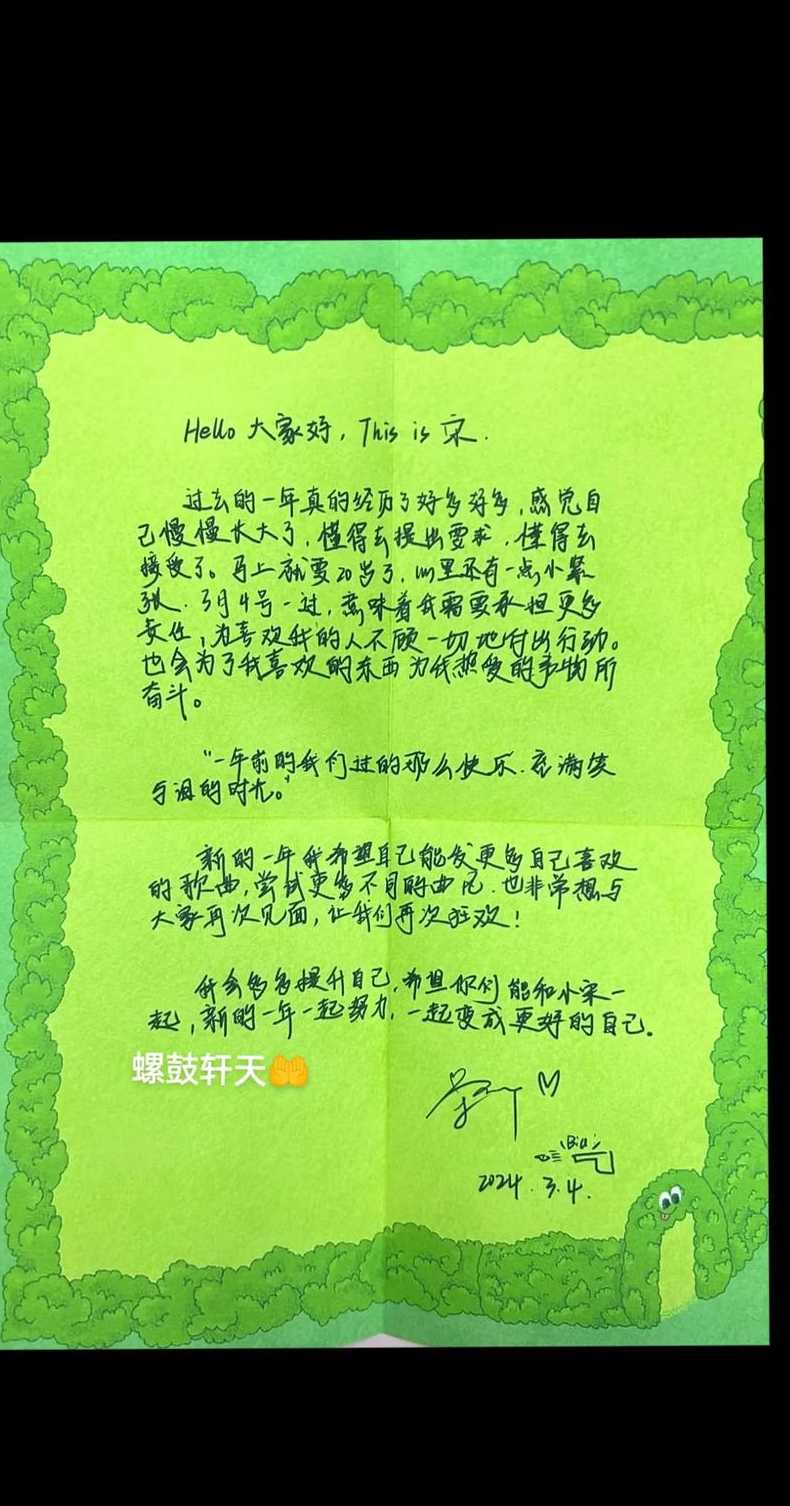 Hello 大家好，This is 宋.
过去的一年真的经历了好多好多，感觉自
己慢慢长大了，懂得去提出要求，懂得去
接受了。马上就要20岁了，心里还有一点小紧
张．3月4号一过，意味着我需要承担更多
责任，为喜欢我的人不顾一切地付出行动。
也会为了我喜欢的东西为我热爱的事物所
奋斗。
“一年前的我们过的那么快乐．充满笑
与泪的时光。”
新的一年我希望自己能发更多自己喜欢
的歌曲，尝试更多不同的曲风．也非常想与
大家再次见面，让我们再次狂欢！
我会多多提升自己，希望你们能和小宋一
起，新的一年一起努力，一起变成更好的自己．
螺鼓轩天🤲
Biu
2024.3.4.